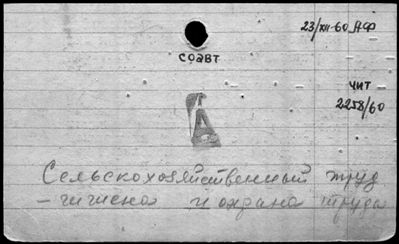 23/XII-60 АФ
СОАВТ
ЧИТ
2258/60
Сельскохозяйственный труд
- гигиена и охрана труда